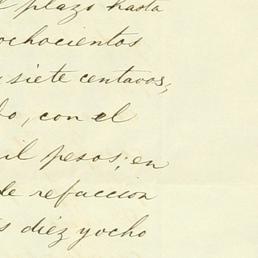 el plazo hasta
ochocientos
y siete centavos,
do, con el
mil pesos, en
de refaccion
s diez y ocho